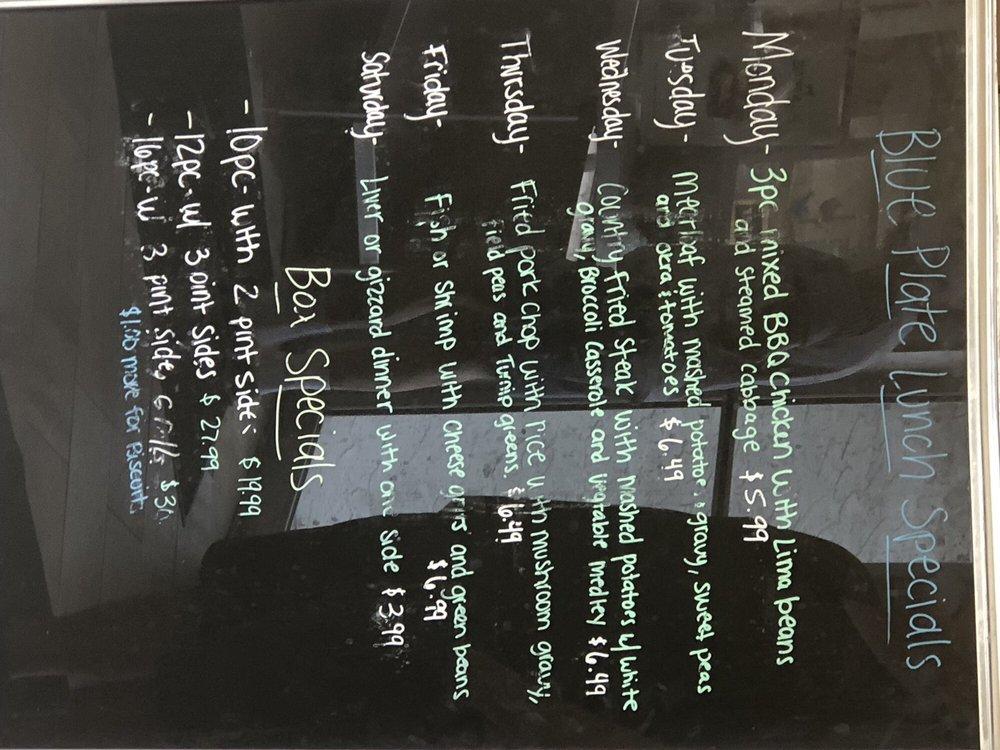 Blue Plate Lunch Specials
Monday- 3pc mixed BBQ Chicken with Lima beans
and steamed Cabbage $5.99
Tuesday- Meatloaf with mashed potatoes, gravy, sweet peas
and okra & tomatoes $6.49
Wednesday- Country fried steak with mashed potatoes w/ white
gravy, Broccoli Casserole and vegetable medley $6.49
Thursday- Fried pork chop with rice with mushroom gravy,
Field peas and Turnip greens $6.49
Friday- Fish or shrimp with cheese grits and green beans
$6.99
Saturday- Liver or gizzard dinner with one side $3.99
Box Specials
- 10pc- with 2 pint sides $19.99
- 12pc- w/ 3 pint sides $27.99
- 16pc- w/ 3 pint sides 6 rolls
$1.00 more for